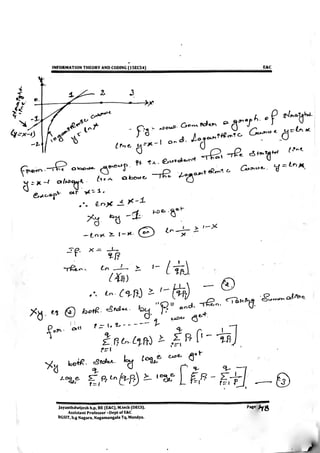 INFORMATION THEORY AND CODING (15EC54) E&C
1 2 3
x
-1
-2
(y=x-1)
Logarithmic Curve
y = ln x
- Fig - Now Consider a graph of straight
line y=x-1 and Logarithmic Curve y=ln x
From The above group it is evident That The straight line
y=x-1 always lies above The Logarithmic Curve y=ln x
Except at x=1.
∴ ln x ≤ x-1
Xly by -1 we get
-ln x ≥ 1-x (or) ln 1/x ≥ 1-x
If x = 1/qPi
Then, ln 1/(1/qPi) ≥ 1-[1/qPi]
∴ ln (qPi) ≥ 1-[1/qPi] — ②
Xly eq ② both sides by "Pi" and Then Taking Summation
for all i=1, 2 - - - - - q we get
q Σ i=1 Pi ln (qPi) ≥ q Σ i=1 Pi [1 - 1/qPi]
Xly both sides by log₂e we get
log₂e q Σ i=1 Pi ln(qPi) ≥ log₂e [q Σ i=1 Pi - q Σ i=1 1/q] — ③
Jayanthdwijesh h.p, BE (E&C), M.tech (DECS). Page 78
Assistant Professor – Dept of E&C
BGSIT, b.g Nagara, Nagamangala Tq, Mandya.